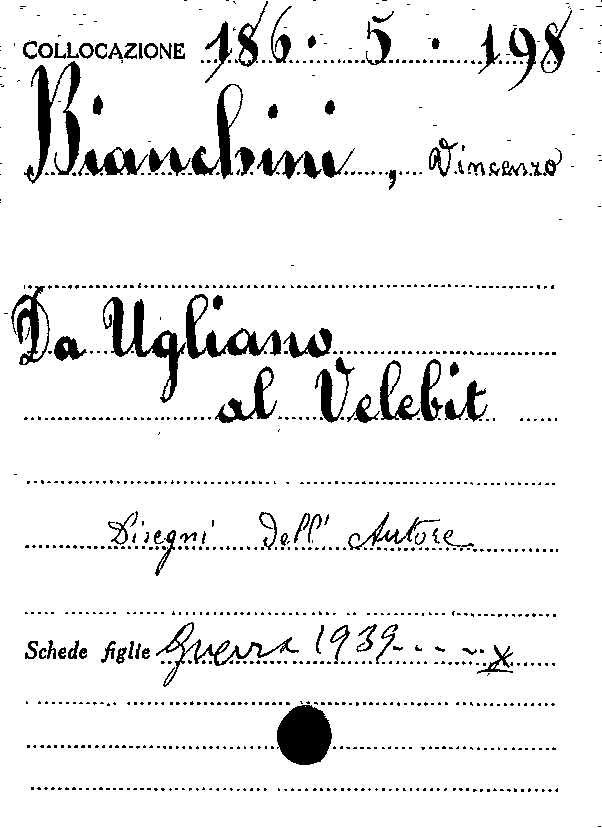 COLLOCAZIONE 186. 5. 198
Bianchini, Vincenzo
Da Ugliano
al Velebit
Disegni dell' Autore
Schede figlie Guerra 1939.....x